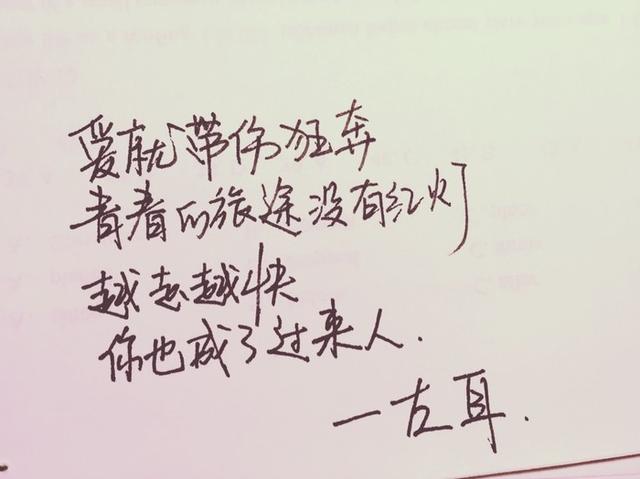 爱就带你狂奔
青春的旅途没有红灯
越走越快
你也成了过来人.
一古耳.